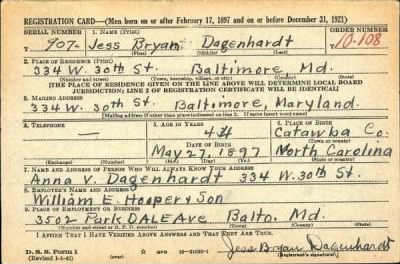 REGISTRATION CARD—(Men born on or after February 17, 1897 and on or before December 31, 1921)
SERIAL NUMBER 1. NAME (Print) ORDER NUMBER
907 Jess Bryan Dagenhardt 10-108
(First) (Middle) (Last)
2. PLACE OF RESIDENCE (Print)
334 W. 30th St. Baltimore Md.
(Number and street) (Town, township, village, or city) (County) (State)
[THE PLACE OF RESIDENCE GIVEN ON THE LINE ABOVE WILL DETERMINE LOCAL BOARD
JURISDICTION; LINE 2 OF REGISTRATION CERTIFICATE WILL BE IDENTICAL]
3. MAILING ADDRESS
334 W. 30th St. Baltimore, Maryland.
[Mailing address if other than place indicated on line 2. If same insert word same]
4. TELEPHONE 5. AGE IN YEARS 6. PLACE OF BIRTH
— 44 Catawba Co.
DATE OF BIRTH (Town or county)
May 27, 1897 North Carolina
(Exchange) (Number) (Mo.) (Day) (Yr.) (State or country)
7. NAME AND ADDRESS OF PERSON WHO WILL ALWAYS KNOW YOUR ADDRESS
Anna V. Dagenhardt 334 W. 30th St.
8. EMPLOYER'S NAME AND ADDRESS
William E. Hooper & Son
9. PLACE OF EMPLOYMENT OR BUSINESS
3502 ParkDALE Ave Balto. Md.
(Number and street or R. F. D. number) (Town) (County) (State)
I AFFIRM THAT I HAVE VERIFIED ABOVE ANSWERS AND THAT THEY ARE TRUE.
D. S. S. Form 1
(Revised 1-1-42) GPO Jess Bryan Dagenhardt
(Registrant's signature)